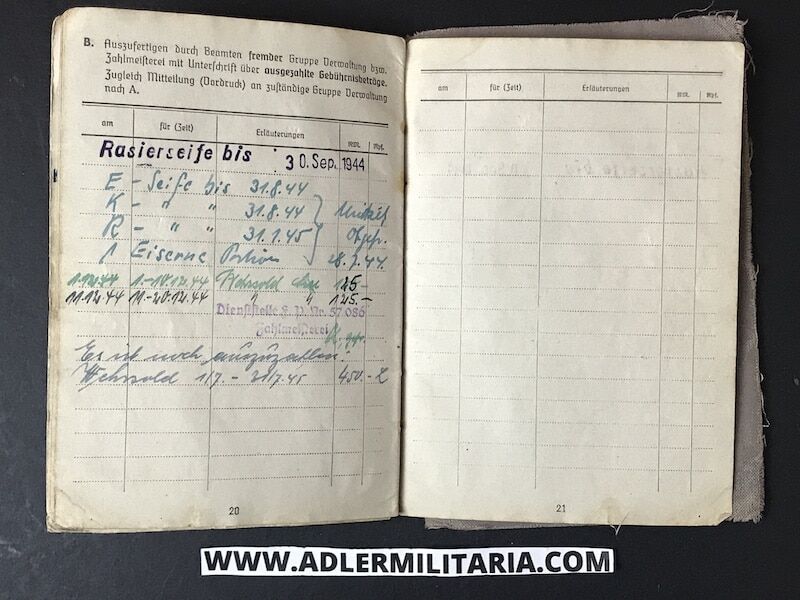 B. Auszufertigen durch Beamten fremder Gruppe Verwaltung bzw.
Zahlmeisterei mit Unterschrift über ausgezahlte Gebührnisbeträge.
Zugleich Mitteilung (Vordruck) an zuständige Gruppe Verwaltung
nach A.
am für (Zeit) Erläuterungen RM. Rpf.
Rasierseife bis 30. Sep. 1944
E - Seife bis 31.8.44
K - " " 31.8.44
R - " " 31.1.45
1 Eiserne Portion
1.12.44 1.-10.12.44 Wehrsold 125.-
11.12.44 11.-20.12.44 " " 125.-
Dienststelle F. P. Nr. 57 086
Zahlmeisterei
Es ist noch auszuzahlen:
Wehrsold 1/7. - 450.-
20
am für (Zeit) Erläuterungen RM. Rpf.
21
WWW.ADLERMILITARIA.COM